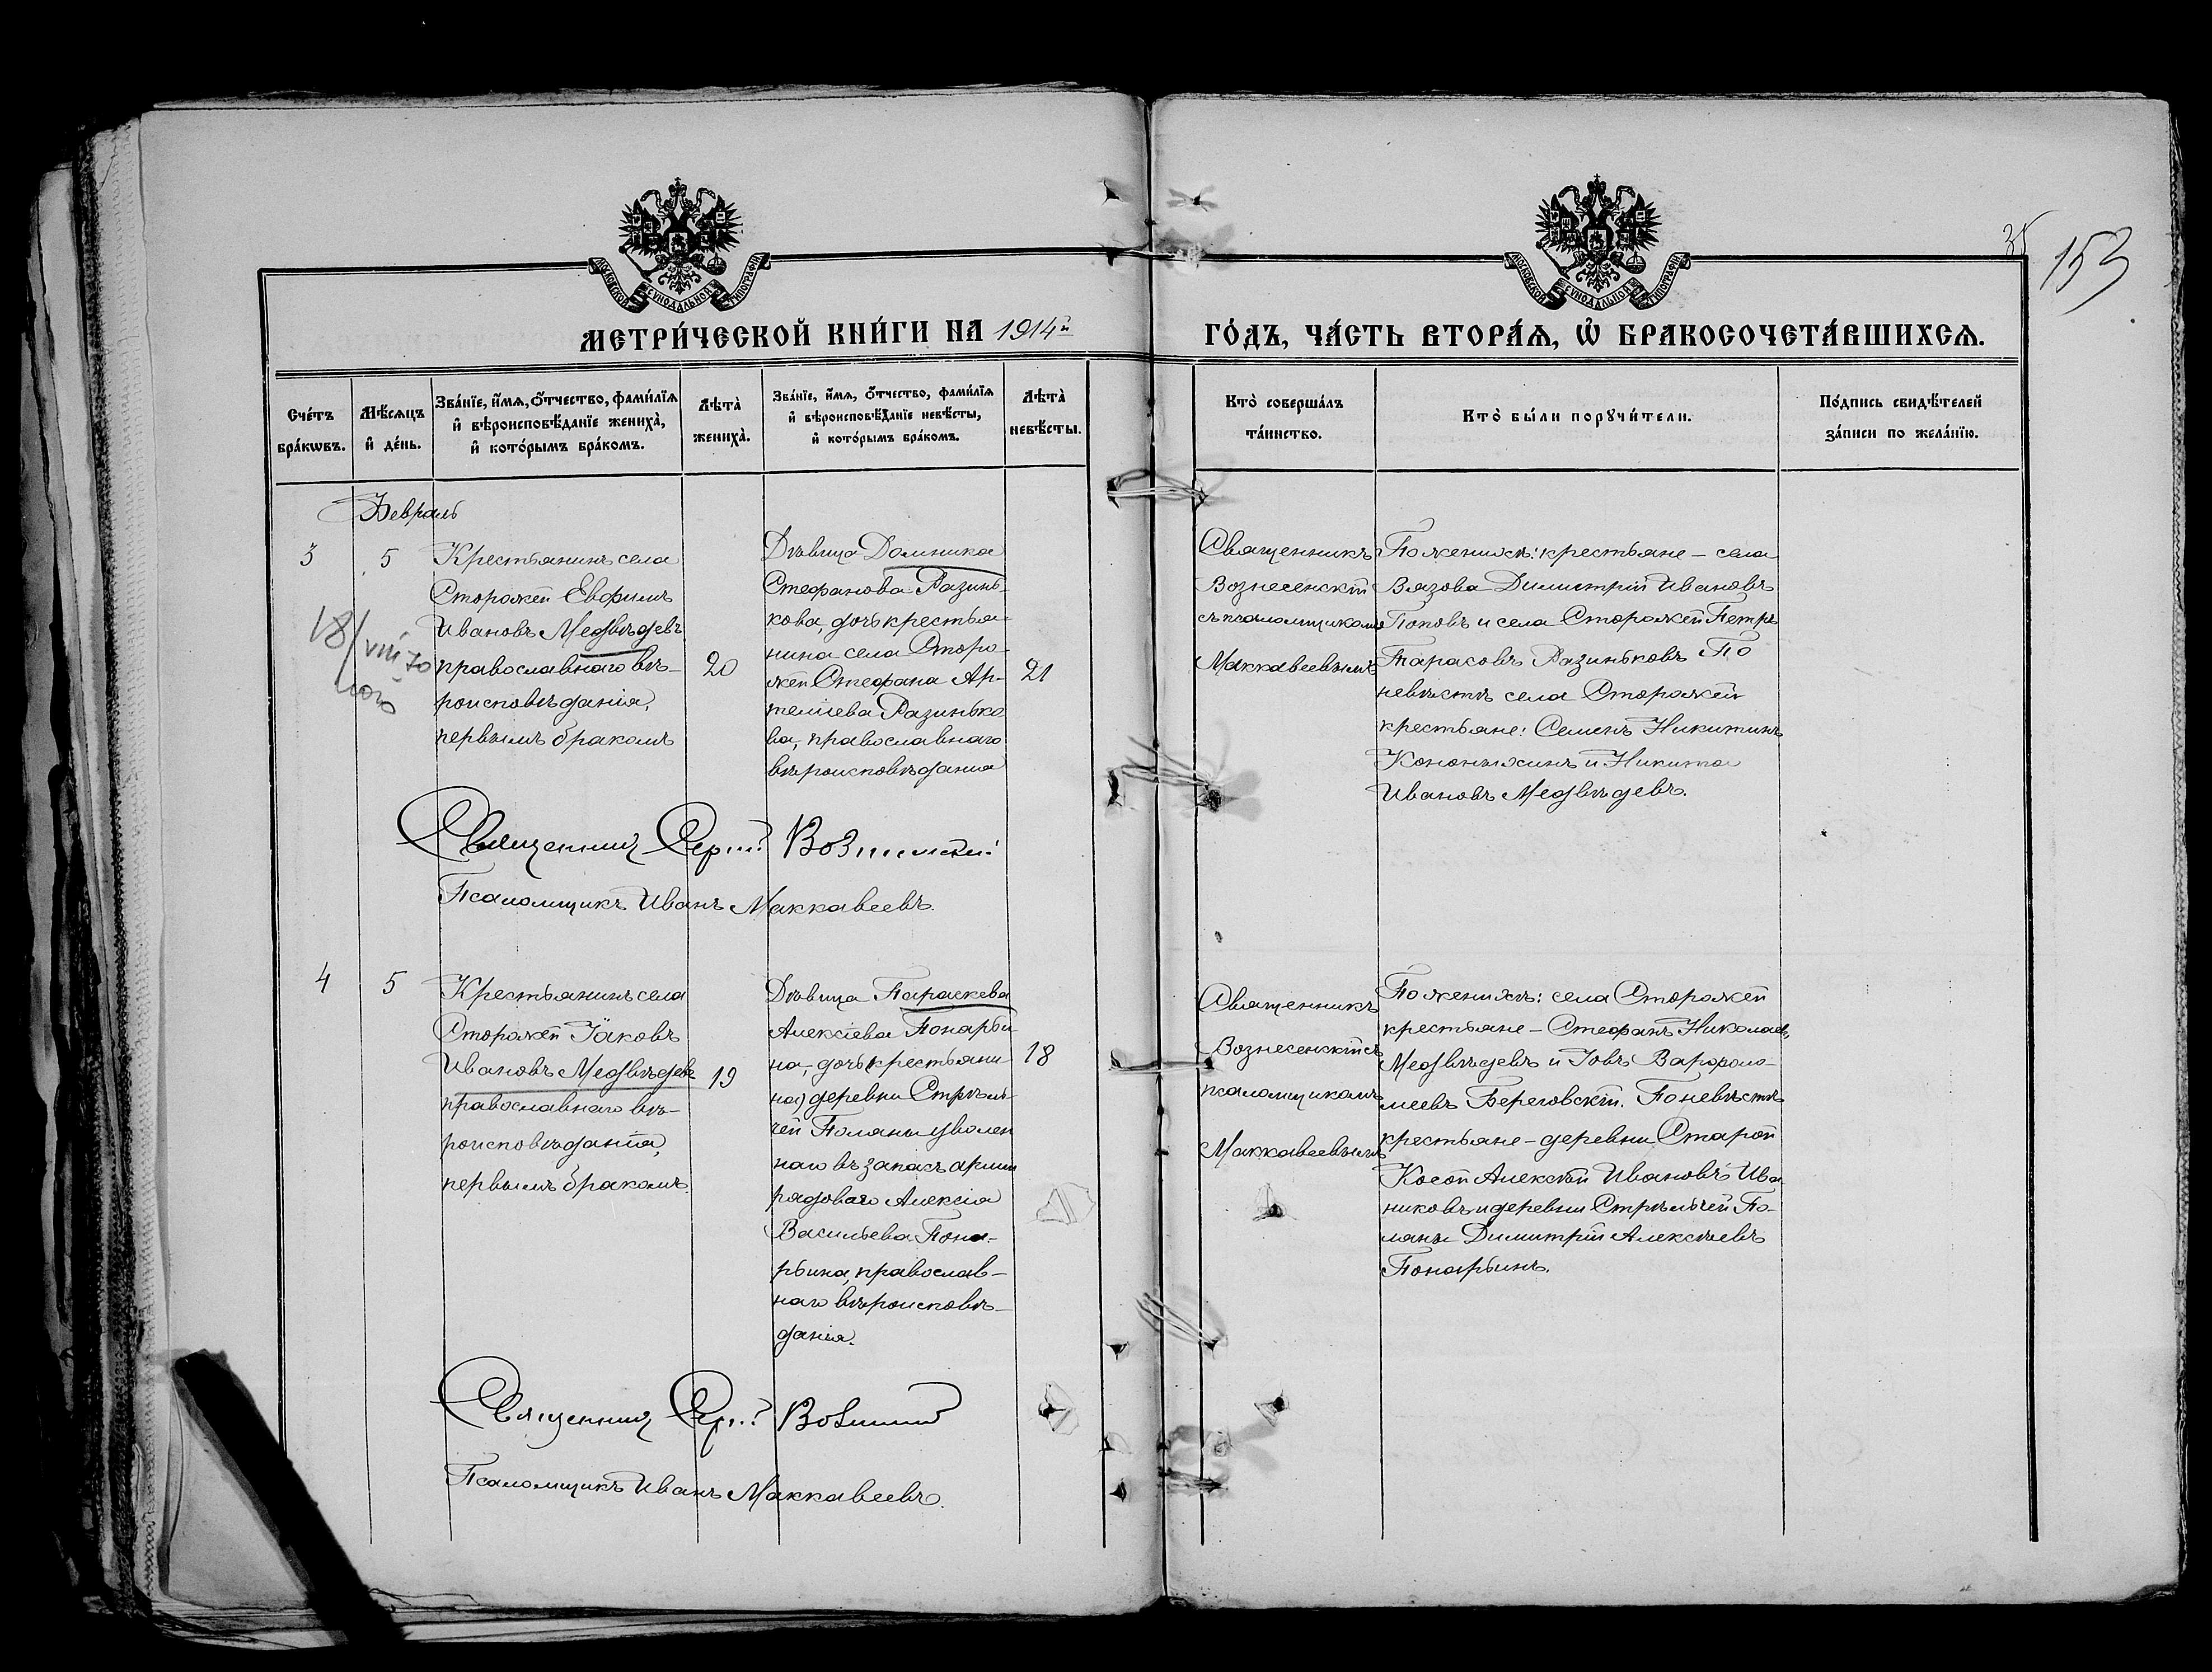 35
153
МОСКОВСКОЙ СѴНОДАЛЬНОЙ ТИПОГРАФІИ
МОСКОВСКОЙ СѴНОДАЛЬНОЙ ТИПОГРАФІИ
МЕТРИ́ЧЕСКОЙ КНИ́ГИ НА 1914й ГО́ДЪ, ЧА́СТЬ ВТОРА́Ѧ, Ѽ БРАКОСОЧЕТА́ВШИХСѦ.
Сче́тъ бра́кѡвъ.
Мѣ́сяцъ и҆ де́нь.
Зва́нїе, и҆́мѧ, ѻ҆́тчество, фами́лїѧ
и҆ вѣроисповѣ́данїе жениха̀,
и҆ кото́рымъ бра́комъ.
Лѣта̀ жениха̀.
Зва́нїе, и҆́мѧ, ѻ҆́тчество, фами́лїѧ
и҆ вѣроисповѣ́данїе невѣ́сты,
и҆ кото́рымъ бра́комъ.
Лѣта̀ невѣ́сты.
Кто̀ соверша́лъ
та́инство.
Кто̀ бы́ли порꙋчи́тели.
По́дпись свидѣ́телей
за́писи по жела́нїю.
Февраль
3
5
Крестьянинъ села
Сторожей Евфимъ
Ивановъ Медвѣдевъ
православнаго вѣ-
роисповѣданія,
первымъ бракомъ
20
Дѣвица Домника
Стефанова Разинь-
кова, дочь крестья-
нина села Сторо-
жей Стефана Ар-
темiева Разинько
ва, православнаго
вѣроисповѣданія
21
18/VIII 70
Священникъ
Вознесенскій
съ псаломщикомъ
Маккавеевымъ
По женихѣ: крестьяне - села
Вязова Димитрій Ивановъ
Поповъ и села Сторожей Петръ
Тарасовъ Разиньковъ По
невѣстѣ села Сторожей
крестьяне: Семенъ Никитинъ
Кононыхинъ и Никита
Ивановъ Медвѣдевъ.
Священникъ Сергій Вознесенскій
Псаломщикъ Иванъ Маккавеевъ.
4
5
Крестьянинъ села
Сторожей Іаковъ
Ивановъ Медвѣдевъ
православнаго вѣ-
роисповѣданія,
первымъ бракомъ.
19
Дѣвица Параскева
Алексіева Понарьи
на, дочь крестьяни
на) деревни Стрѣль-
чей Поляны уволен
наго въ запасъ арміи
рядоваго Алексія
Васильева Пона-
рьина, православ-
наго вѣроисповѣ-
данія.
18
Священникъ
Вознесенскій съ
псаломщикомъ
Маккавеевымъ
По женихѣ: села Сторожей
крестьяне - Стефанъ Николаевъ
Медвѣдевъ и Іовъ Варфоло-
меевъ Береговскій. По невѣстѣ
крестьяне - деревни Старой
Косой Алексѣй Ивановъ Ива
никовъ и деревни Стрѣльчей По-
ляны Димитрій Алексѣевъ
Понарьинъ.
Священникъ Сергій Вознесенскій
Псаломщикъ Иванъ Маккавеевъ.